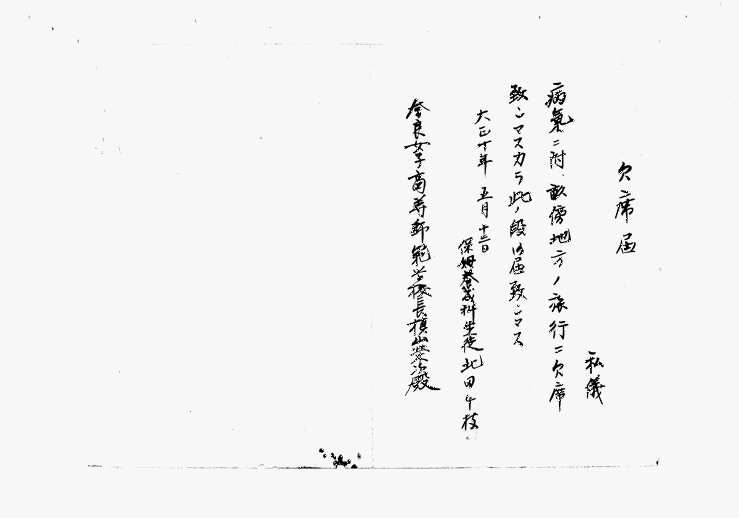 欠席届
私儀
病氣ニ附、畝傍地方ノ旅行ニ欠席
致シマスカラ此ノ段御届致シマス
大正十年五月十三日
保姆養成科生徒北田千枝
奈良女子高等師範学校長槙山榮次殿